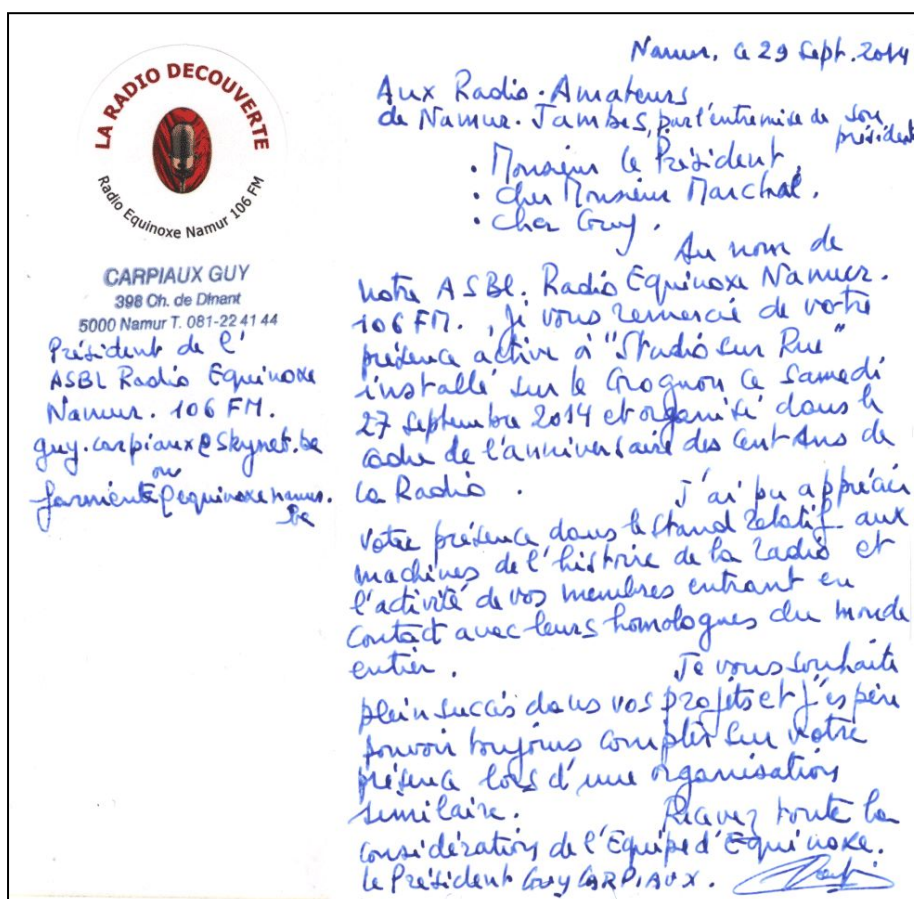 LA RADIO DECOUVERTE
Radio Equinoxe Namur 106 FM
CARPIAUX GUY
398 Ch. de Dinant
5000 Namur T. 081-22 41 44
Président de l'
ASBL Radio Equinoxe
Namur. 106 FM.
guy.carpiaux@skynet.be
ou
farniente@equinoxenamur.
be
Namur, le 29 Sept. 2014
Aux Radio-Amateurs
de Namur-Jambes, par l'entremise de son
président
· Monsieur le Président,
· Cher Monsieur Marchal,
· Cher Guy,
Au nom de
notre ASBL. Radio Equinoxe Namur.
106 FM., je vous remercie de votre
présence active à "Studio sur Rue"
installé sur le Grognon ce samedi
27 septembre 2014 et organisé dans le
cadre de l'anniversaire des Cent Ans de
la Radio.
J'ai pu apprécier
votre présence dans le stand relatif aux
machines de l'histoire de la radio et
l'activité de vos membres entrant en
contact avec leurs homologues du monde
entier.
Je vous souhaite
plein succès dans vos projets et j'espère
pouvoir toujours compter sur votre
présence lors d'une organisation
similaire.
Recevez toute la
considération de l'Equipe d'Equinoxe.
le Président Guy CARPIAUX.